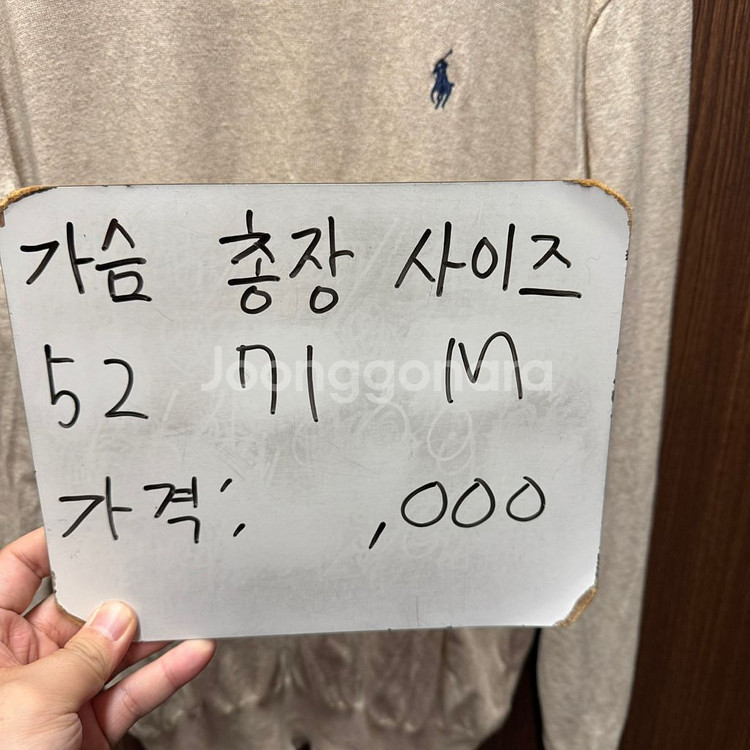 가슴 총장 사이즈
52 71 M
Joonggonara
가격: ,000